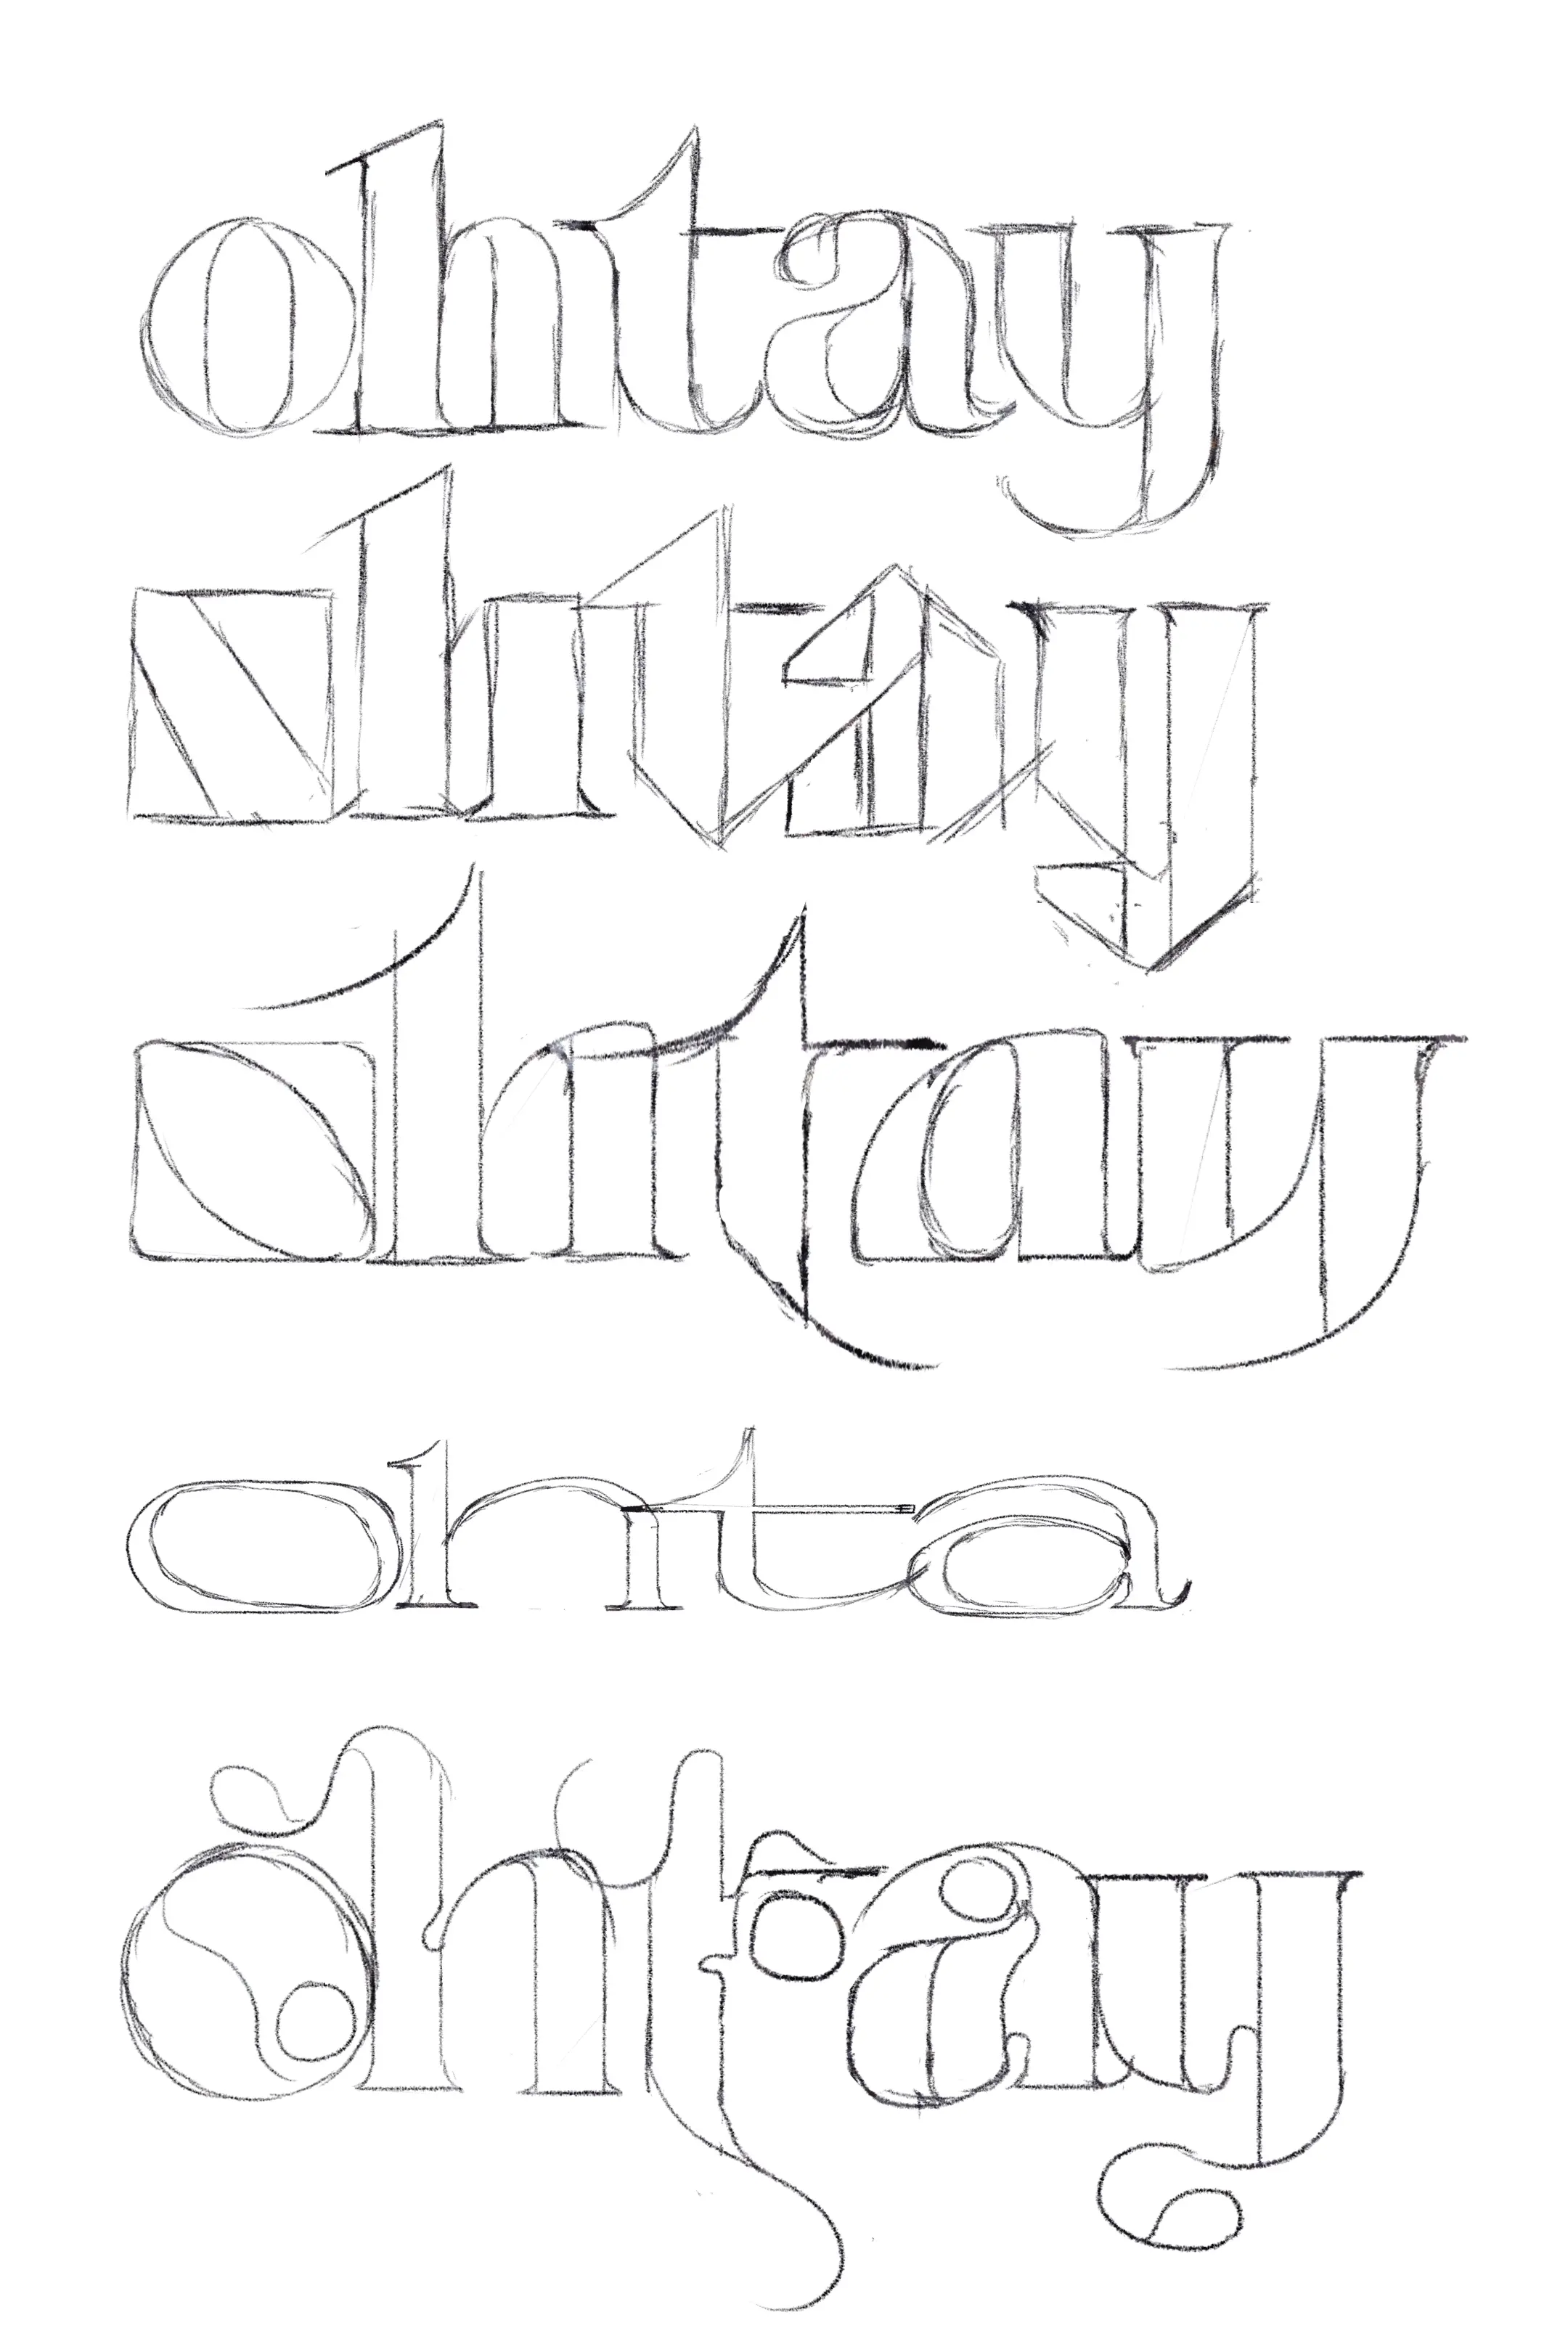 ohtay
ohtay
ohtay
ohta
ohtay